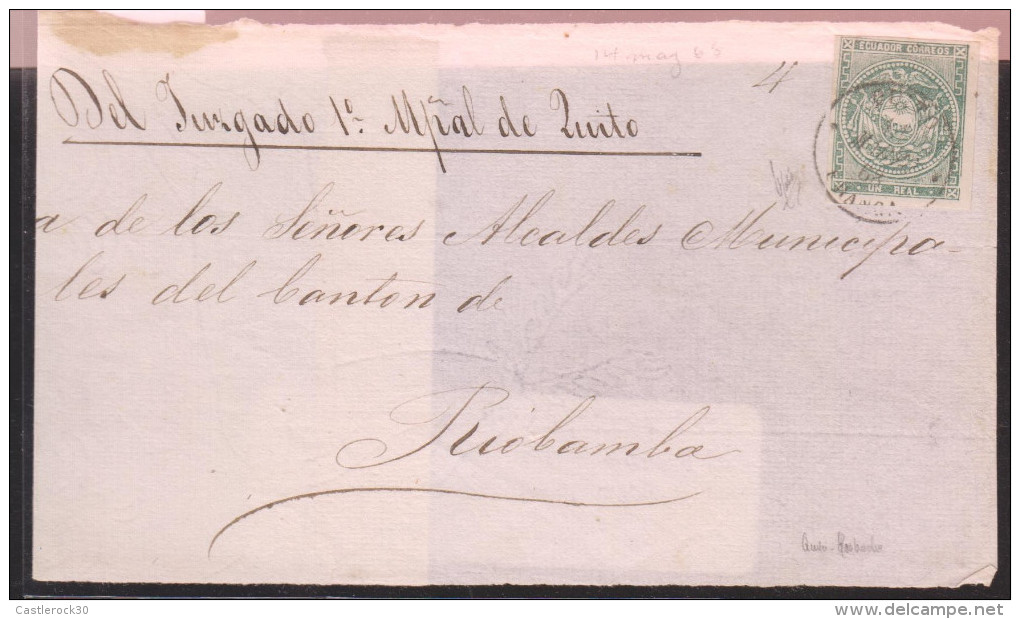 14 may 68
4
ECUADOR CORREOS
UN REAL
FRANCA
Del Juzgado 1º. Mpãl de Quito
a de los Señores Alcaldes Municipa-
les del Canton de
Riobamba
Castlerock30
www.delcampe.net